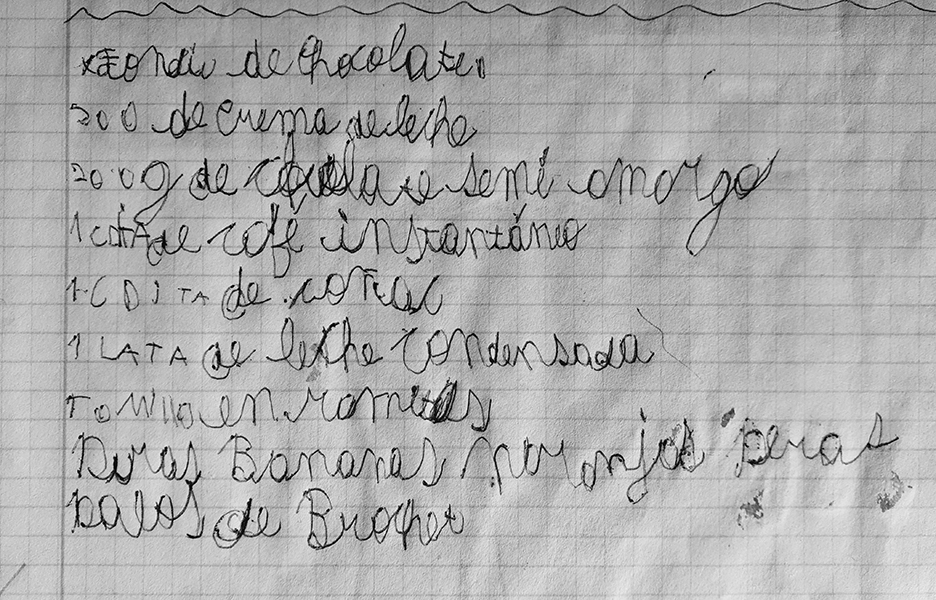 Fondiu de chocolate
200 de crema de leche
200g de chocolate semi amargo
1 cdita de café instantáneo
1 CDITA de coñac
1 LATA de leche condensada
Tomillo en ramitas
Peras Bananas naranjas peras
palos de Brochet